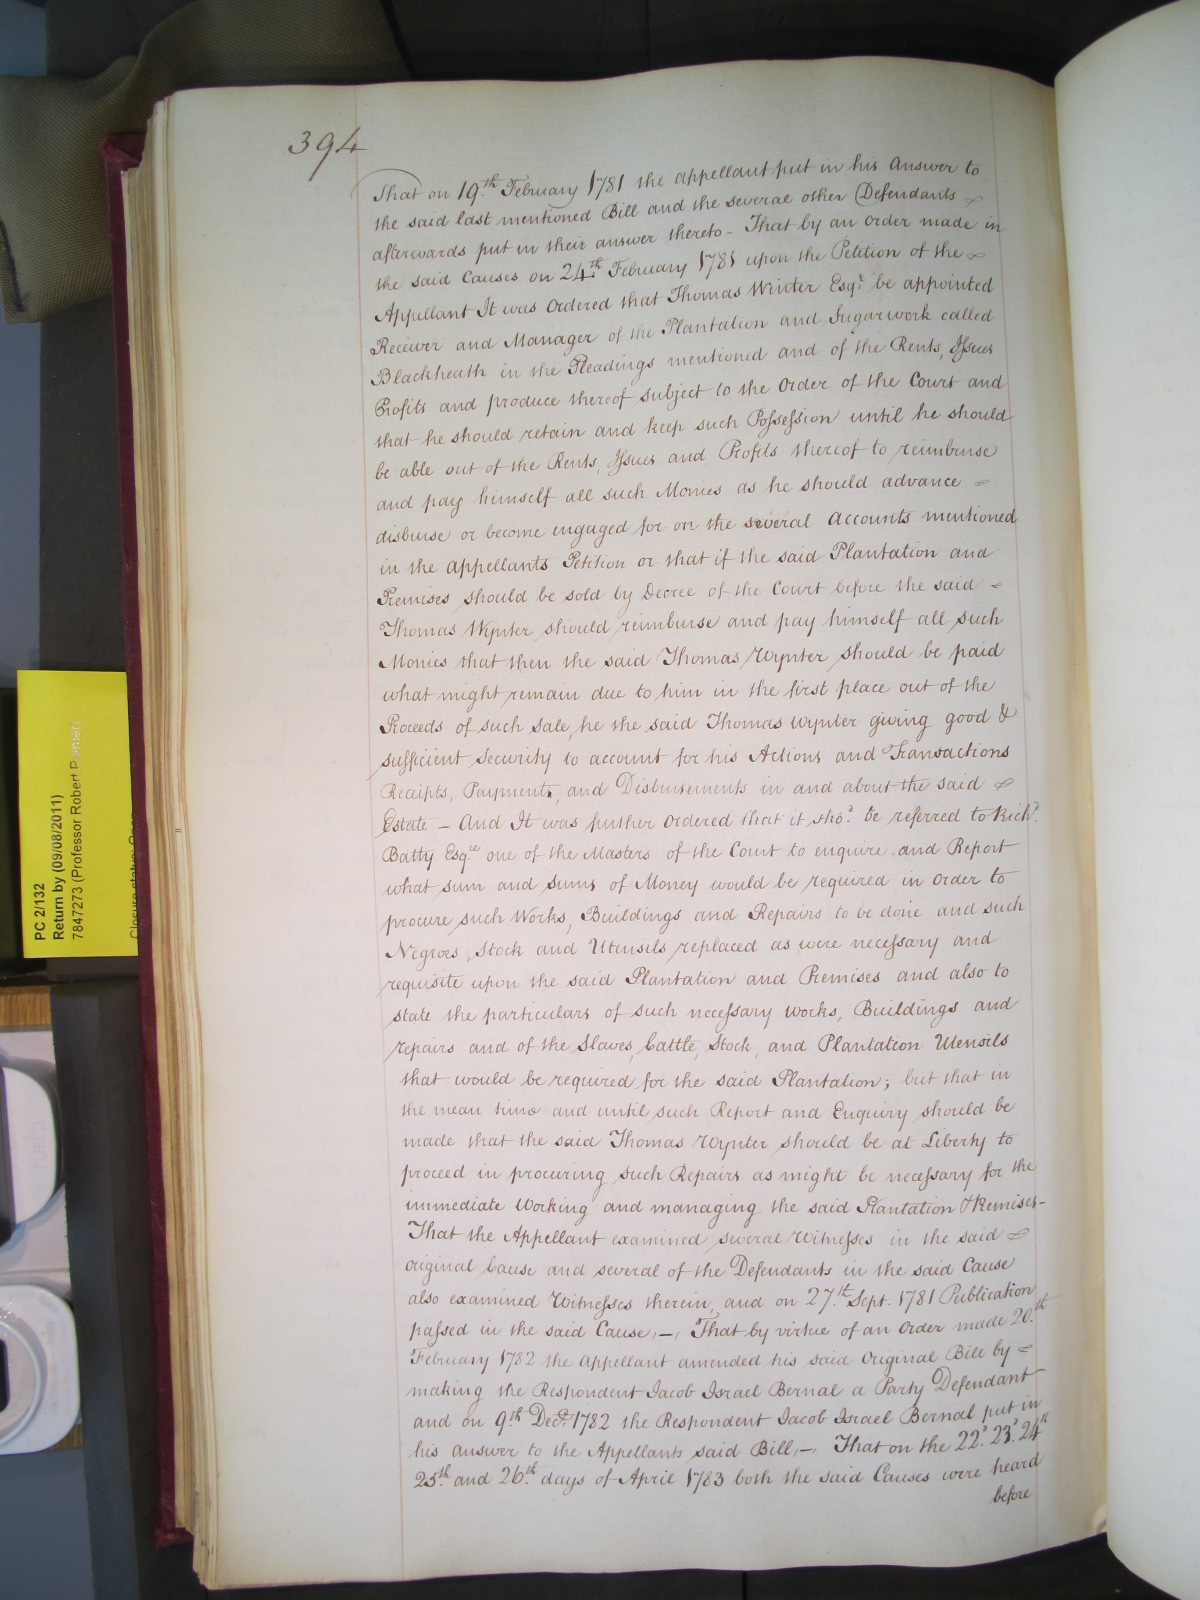 394
That on 19.th February 1781 the appellant put in his Answer to
the said last mentioned Bill and the several other Defendants
afterwards put in their answer thereto - That by an order made in
the said Causes on 24.th February 1781 upon the Petition of the
Appellant It was Ordered that Thomas Winter Esq.r be appointed
Receiver and Manager of the Plantation and Sugarwork called
Blackheath in the Pleadings mentioned and of the Rents, Issues
Profits and produce thereof subject to the Order of the Court and
that he should retain and keep such Possession until he should
be able out of the Rents, Issues and Profits thereof to reimburse
and pay himself all such Monies as he should advance =
disburse or become engaged for on the several Accounts mentioned
in the appellants Petition or that if the said Plantation and
Premises should be sold by Decree of the Court before the said =
Thomas Wynter should reimburse and pay himself all such
Monies that then the said Thomas Wynter should be paid
what might remain due to him in the first place out of the
Proceeds of such Sale, he the said Thomas Wynter giving good &
sufficient Security to account for his Actions and Transactions
Receipts, Payments, and Disbursements in and about the said
Estate - And It was further Ordered that it sho.d be referred to Rich.d
Batty Esq.re one of the Masters of the Court to enquire and Report
what sum and sums of Money would be required in order to
procure such Works, Buildings and Repairs to be done and such
Negroes, Stock and Utensils replaced as were necessary and
requisite upon the said Plantation and Premises and also to
state the particulars of such necessary works, Buildings and
repairs and of the Slaves, Cattle, Stock, and Plantation Utensils
that would be required for the said Plantation; but that in
the mean time and until such Report and Enquiry should be
made that the said Thomas Wynter should be at Liberty to
proceed in procuring such Repairs as might be necessary for the
immediate Working and managing the said Plantation & Premises -
That the Appellant examined several Witnesses in the said
original Cause and several of the Defendants in the said Cause
also examined Witnesses therein, and on 27.th Sept. 1781 Publication
passed in the said Cause, -, That by virtue of an Order made 20.th
February 1782 the Appellant amended his said Original Bill by =
making the Respondent Jacob Israel Bernal a Party Defendant
and on 9.th Dec.r 1782 the Respondent Jacob Israel Bernal put in
his answer to the Appellants said Bill, -, That on the 22.d 23.d 24th
25.th and 26.th days of April 1783 both the said Causes were heard
before
PC 2/132
Return by (09/08/2011)
7847273 (Professor Robert Palmer)